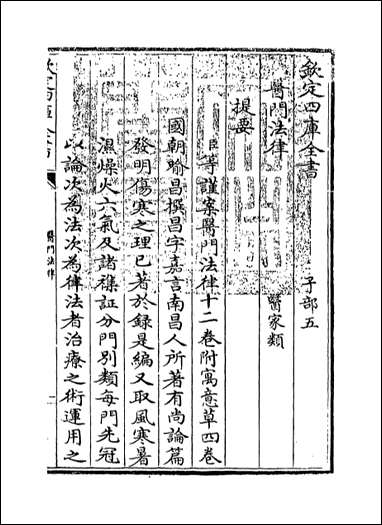 欽定四庫全書　　　子部五
醫門法律　　　醫家類
提要
臣等謹案醫門法律十二卷附寓意草四卷
國朝喻昌撰昌字嘉言南昌人所著有尚論篇
發明傷寒之理已著於録是編又取風寒暑
濕燥火六氣及諸雜証分門別類每門先冠
以論次為法次為律法者治療之術運用之
醫門法律